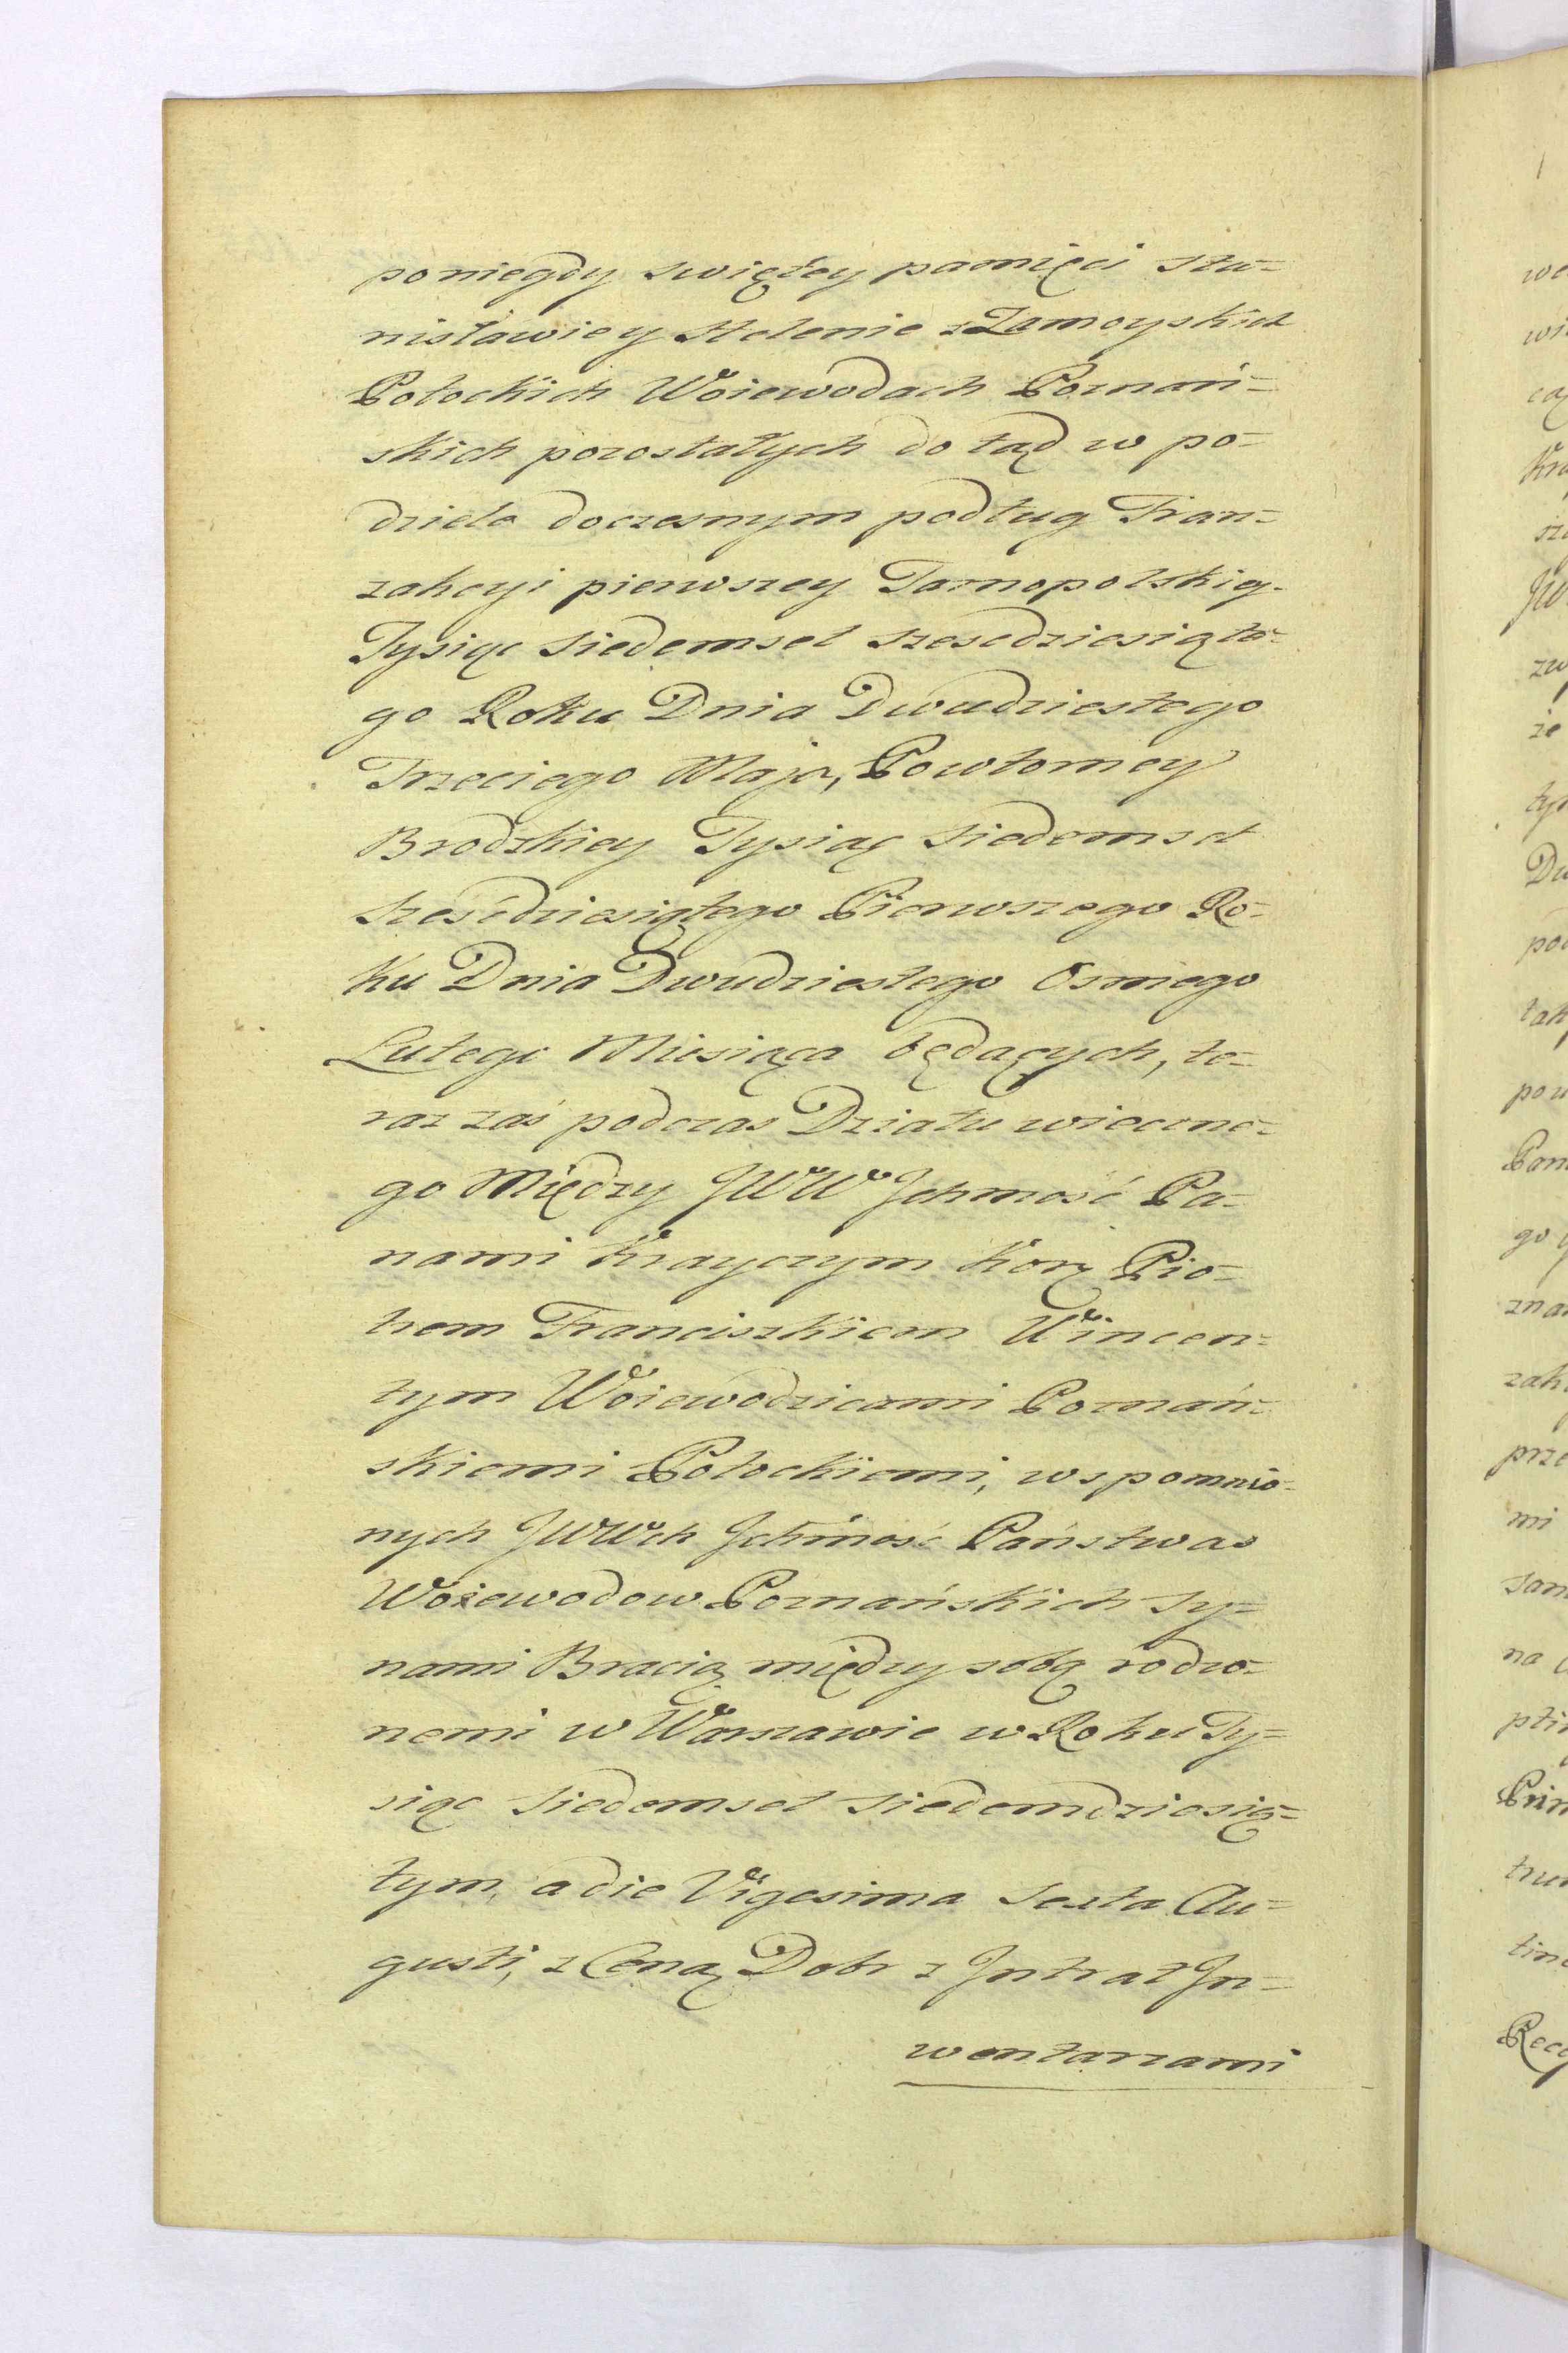 poniegdy swiętey pamięci Sta=
nisławie y Helenie z Zamoyskich
Potockich Woiewodach Poznań=
skich pozostałych do tąd w po=
dziele doczesnym podług Tran=
zakcyi pierwszey Tarnopolskiey
Tysiąc siedemset szescdziesiąte=
go Roku Dnia Dwudziestego
Trzeciego Maja, Powtorney
Brodzkiey Tysiąc siedemset
szesćdziesiątego Pierwszego Ro=
ku Dnia Dwudziestego Osmego
Lutego Miesiąca będących, te=
raz zaś podczas Działu wieczne=
go Między JWW Jchmość Pa=
nami Krayczym Kor: Pio=
trem Franciszkiem Wincen=
tym Woiewodzicami Poznań=
skiemi Potockiemi, wspomnio=
nych JWWch Jchmość Państwa
Woiewodow Poznańskich Sy=
nami Bracią między sobą rodzo=
nemi w Warszawie w Roku Ty=
siąc siedemset siedemdziesią=
tym, a die Vigesima Sexta Au=
gusti, z Ceną Dobr z Intrat In=
wentarzami
we
wi
Kra
JW
zw
że
Du
Pam
go
zna
zak
prze
mi
sam
na